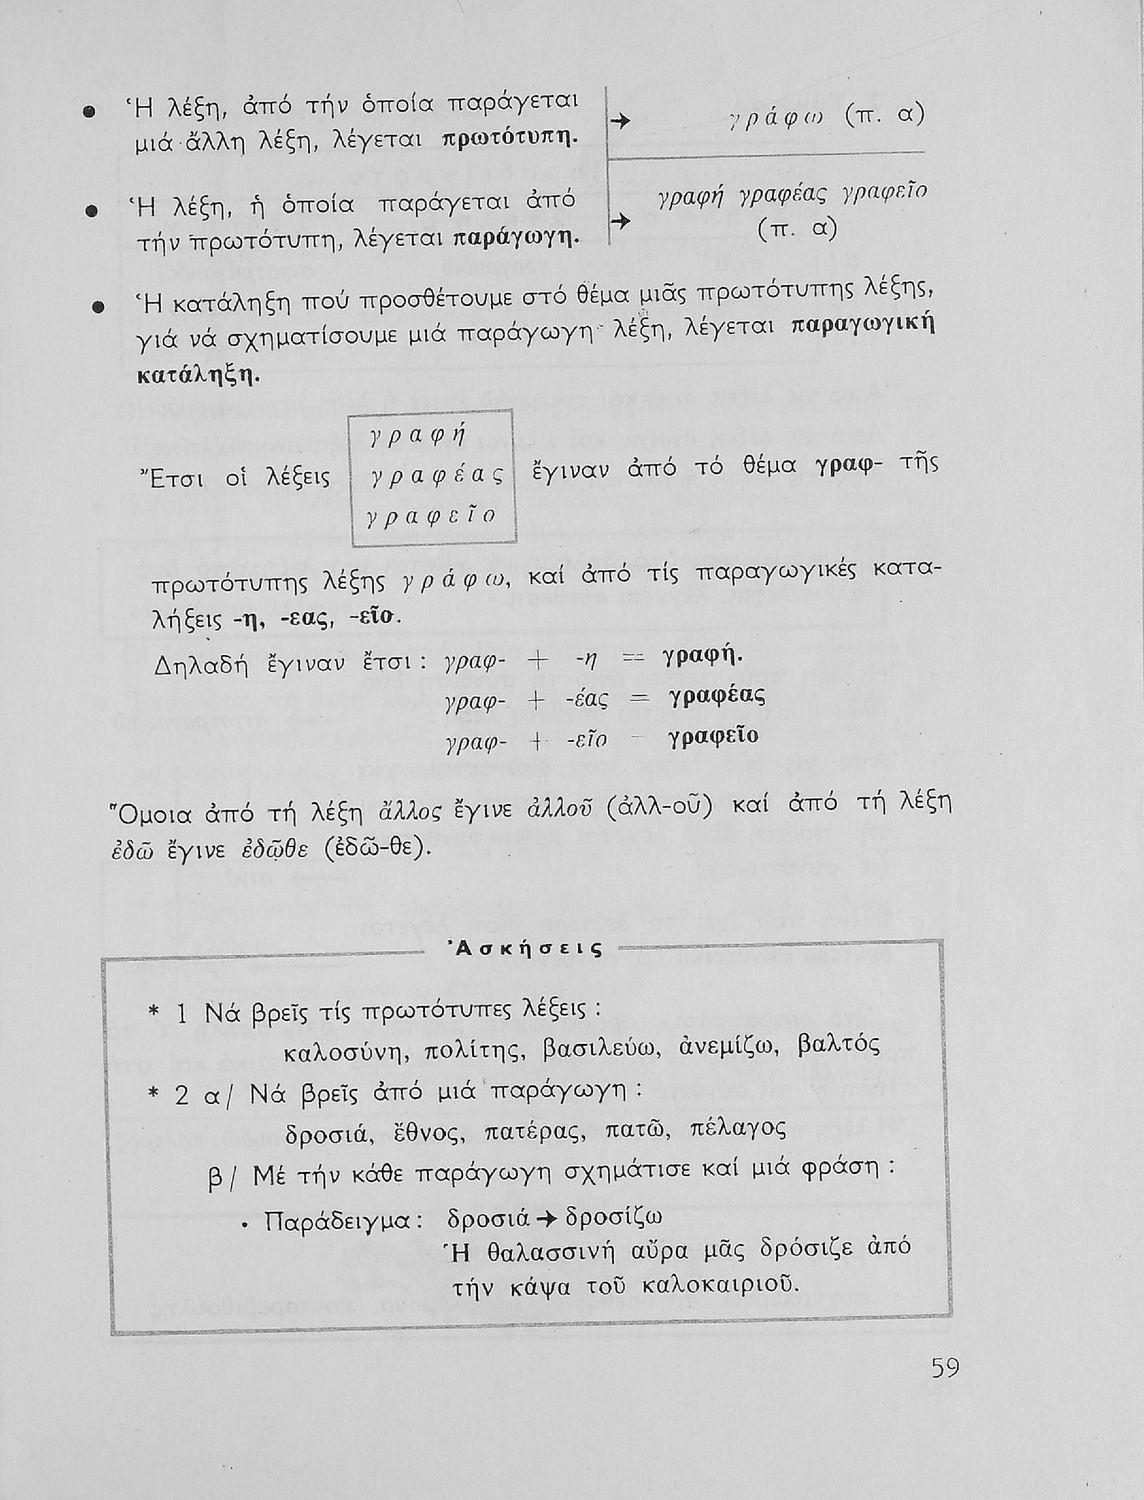 ● Ἡ λέξη, ἀπό τήν ὁποία παράγεται
μιά ἄλλη λέξη, λέγεται πρωτότυπη.
→ γράφω (π. α)
● Ἡ λέξη, ἡ ὁποία παράγεται ἀπό
τήν πρωτότυπη, λέγεται παράγωγη.
→ γραφή γραφέας γραφεῖο
(π. α)
● Ἡ κατάληξη πού προσθέτουμε στό θέμα μιᾶς πρωτότυπης λέξης,
γιά νά σχηματίσουμε μιά παράγωγη λέξη, λέγεται παραγωγική
κατάληξη.
γραφή
Ἔτσι οἱ λέξεις γραφέας ἔγιναν ἀπό τό θέμα γραφ- τῆς
γραφεῖο
πρωτότυπης λέξης γράφω, καί ἀπό τίς παραγωγικές κατα-
λήξεις -η, -εας, -εῖο.
Δηλαδή ἔγιναν ἔτσι : γραφ- + -η = γραφή.
γραφ- + -έας = γραφέας
γραφ- + -εῖο - γραφεῖο
Ὅμοια ἀπό τή λέξη ἄλλος ἔγινε ἀλλοῦ (ἀλλ-οῦ) καί ἀπό τή λέξη
ἐδῶ ἔγινε ἐδῶθε (ἐδῶ-θε).
Ἀσκήσεις
* 1 Νά βρεῖς τίς πρωτότυπες λέξεις :
καλοσύνη, πολίτης, βασιλεύω, ἀνεμίζω, βαλτός
* 2 α/ Νά βρεῖς ἀπό μιά παράγωγη :
δροσιά, ἔθνος, πατέρας, πατῶ, πέλαγος
β/ Μέ τήν κάθε παράγωγη σχημάτισε καί μιά φράση :
• Παράδειγμα : δροσιά → δροσίζω
Ἡ θαλασσινή αὔρα μᾶς δρόσιζε ἀπό
τήν κάψα τοῦ καλοκαιριοῦ.
59